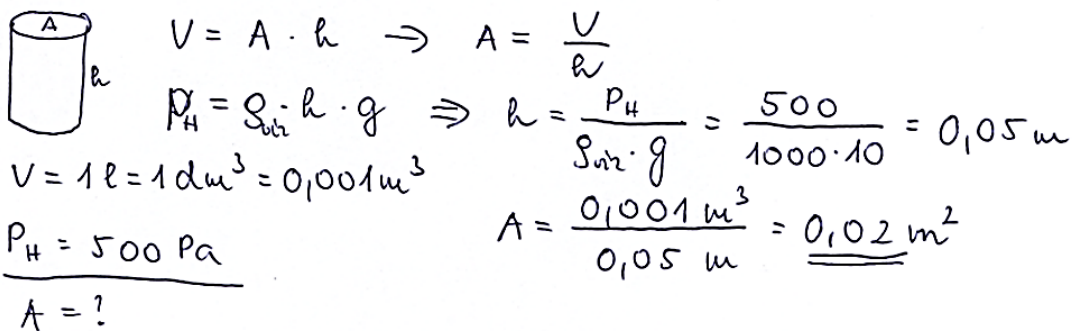 A
h
V = A · h → A = V/h
p_H = ρ_víz · h · g ⇒ h = P_H / (ρ_víz · g) = 500 / (1000·10) = 0,05 m
V = 1 l = 1 dm³ = 0,001 m³
P_H = 500 Pa
A = ?
A = 0,001 m³ / 0,05 m = 0,02 m²